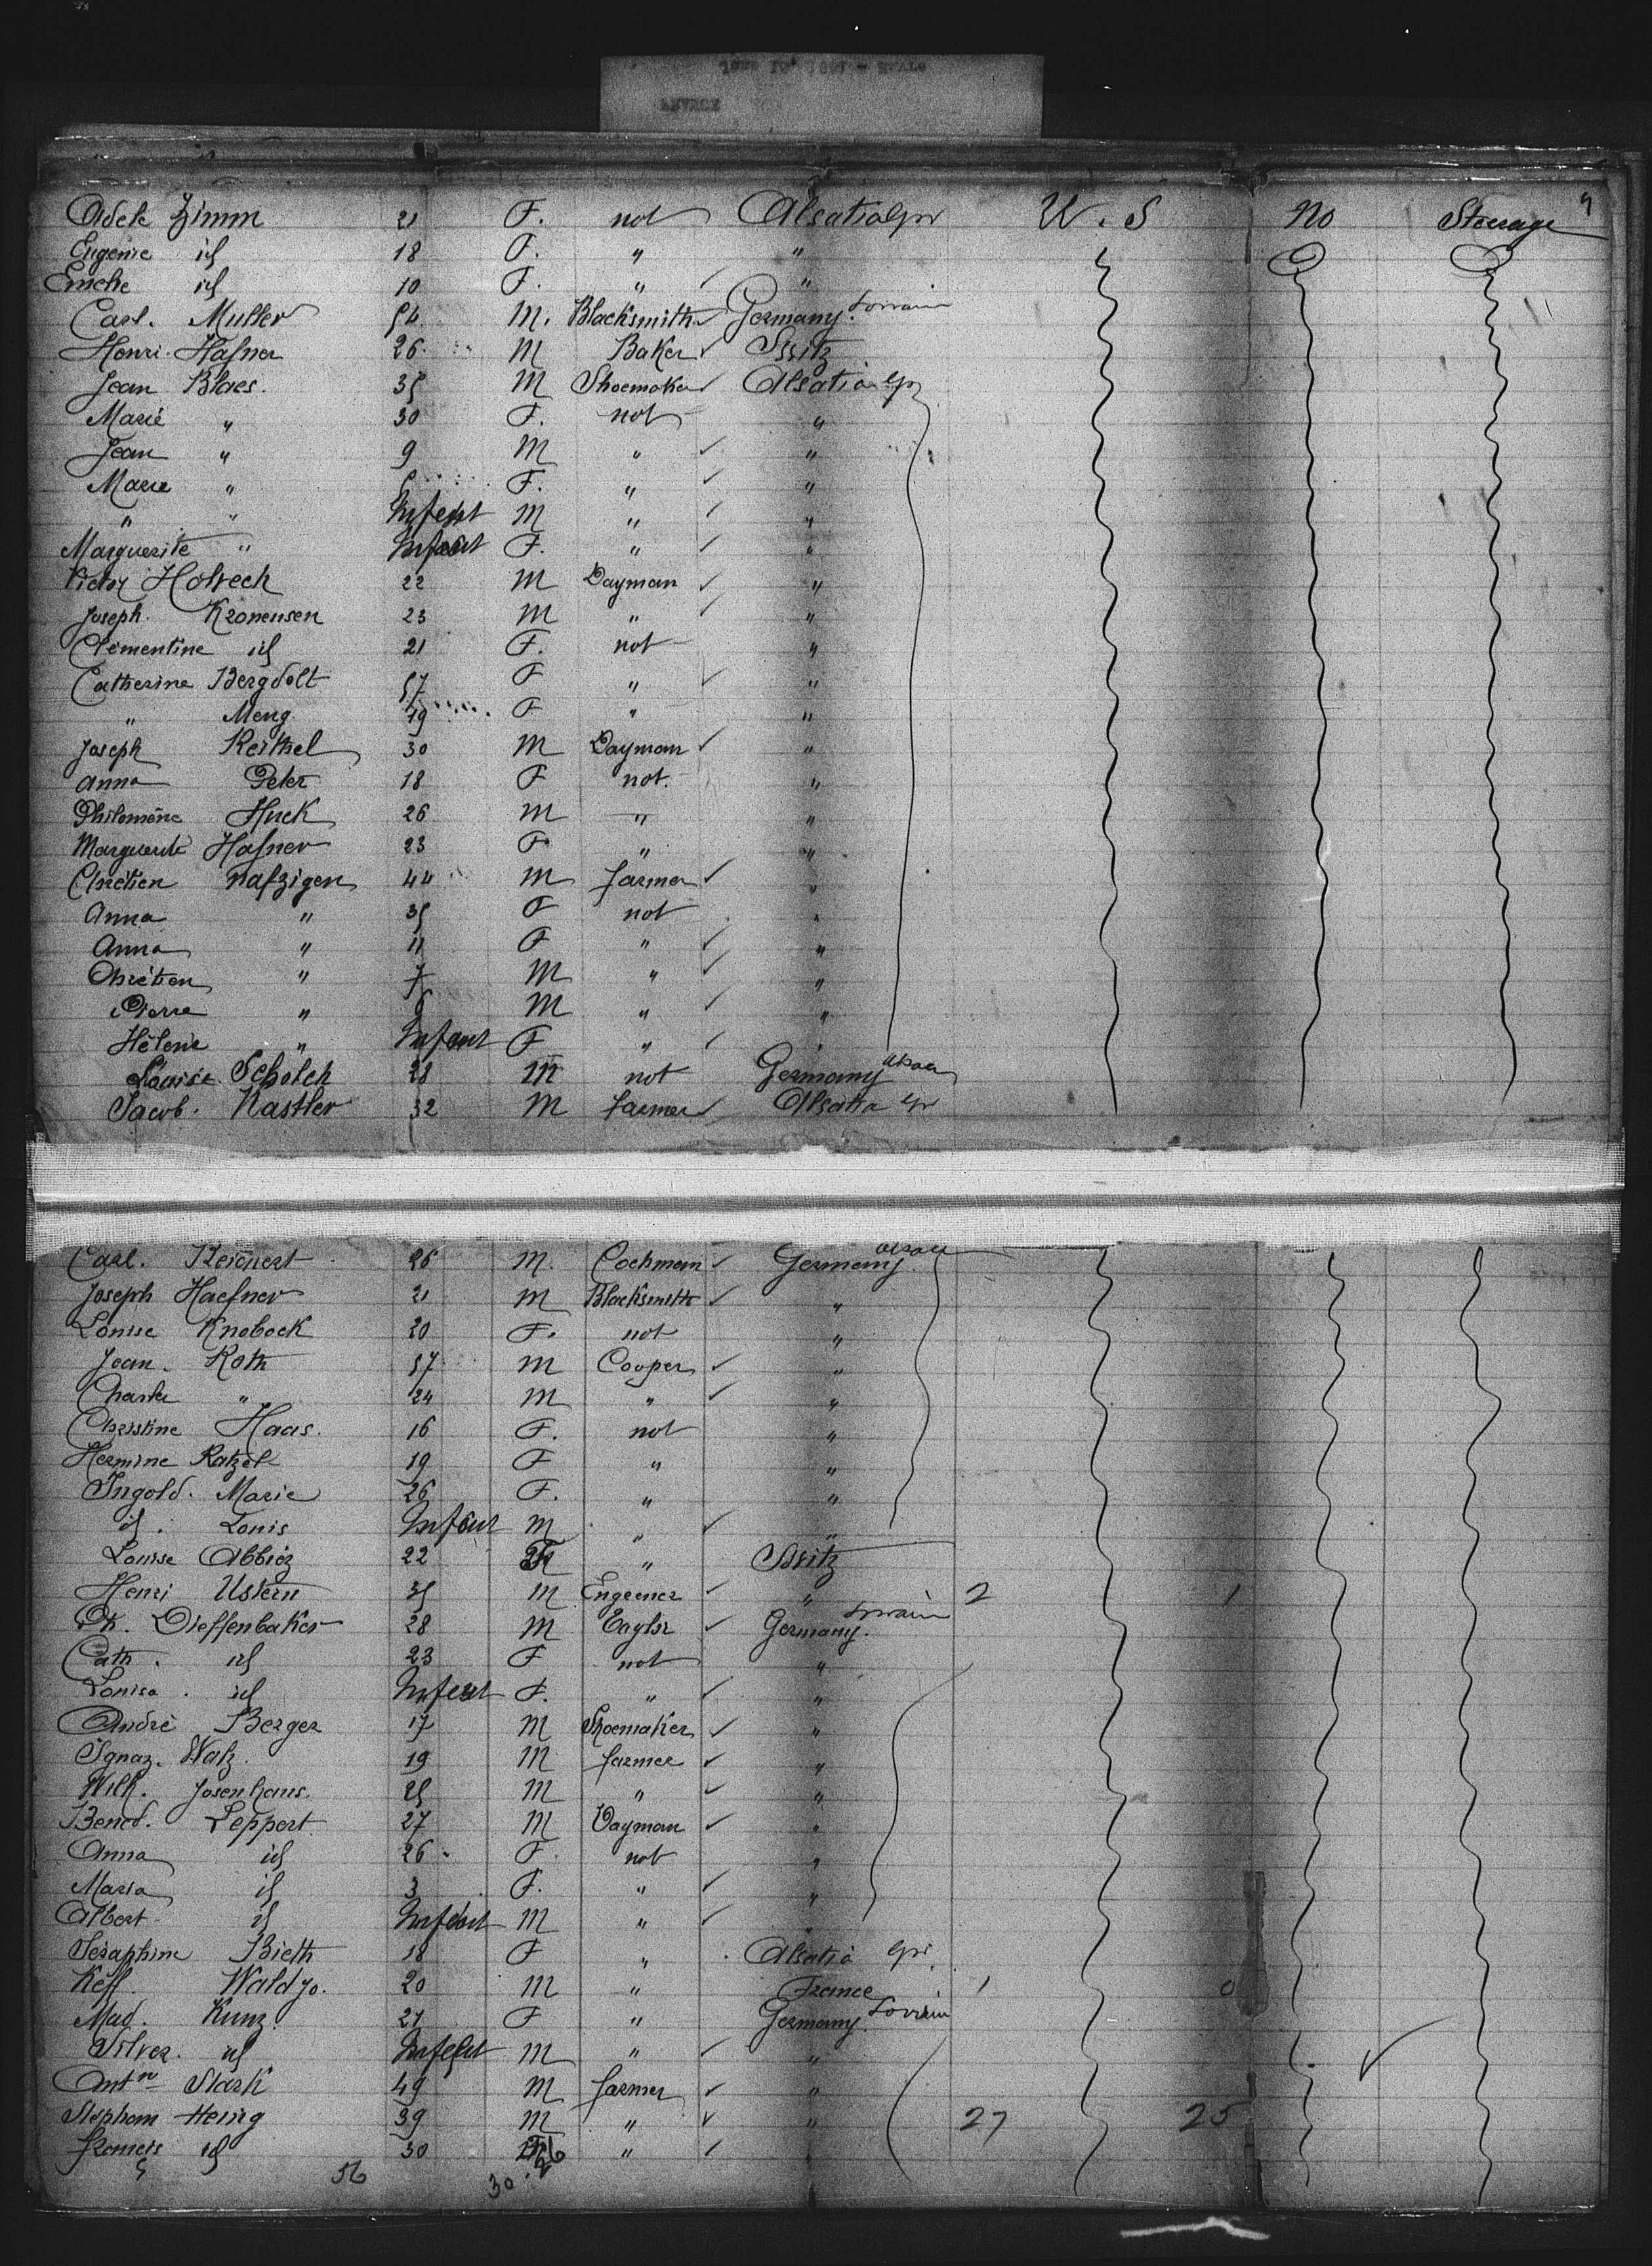 4
Adele Zimm 21 F. not Alsatia Gr U. S No Steerage
Eugenie id 18 F. " "
Emelie id 10 F. " "
Carl. Muller 54 M. Blacksmith Germany. Lorrain
Henri Hafner 26 M Baker
Jean Blaes. 35 M Shoemaker Alsatia Gr
Marie " 30 F. not "
Jean " 9 M " "
Marie " F. " "
" " Infant M " "
Marguerite " Infant F. " "
Victor Holveck 22 M Dayman "
Joseph. Kronensen 23 M " "
Clementine id 21 F. not "
Catherine Bergdolt 57 F " "
" Meng 19 F " "
Joseph Keithel 30 M Dayman "
Anna Peter 18 F not. "
Philomène Huck 26 M " "
Marguerite Hafner 23 F " "
Chretien Nafzigen 44 M farmer "
Anna " 35 F not "
Anna " 11 F " "
Chrétien " 7 M " "
Pierre " 6 M " "
Hélene " Infant F " "
Louise Scholch 28 M not Germany Alsace
Jacob. Kastler 32 M farmer Alsatia Gr
Carl. Reichert 26 M. Cochman Germany. Alsace
Joseph Haefner 21 M Blacksmith "
Louise Knobock 20 F. not "
Jean. Roth 57 M Cooper "
Charles " 24 M " "
Christine Haas. 16 F. not "
Hermine Ratzel 19 F " "
Ingold. Marie 26 F. " "
id. Louis Infant M " "
Louise Abbiez 22 F "
Henri Ustern 35 M Engeener " 2 1
Ph. Dieffenbaker 28 M Germany. Lorrain
Cath. id 23 F not "
Louisa. id Infant F. " "
André Berger 17 M Shoemaker "
Ignaz. Walz. 19 M farmer "
Wilh. Josenhans. 25 M " "
Bened. Leppert 27 M Dayman "
Anna id 26 F. not "
Maria id 3 F. " "
Albert id Infant M " "
Seraphine Bieth 18 F " Alsatia Gr.
Keff. Wald jo. 20 M " France 1 0
Mad. Kunz. 27 F " Germany. Lorrain
Silver. id Infant M " "
Antn Stark 49 M farmer "
Stephan Heing 39 M " " 27 25
Francis id 30 "
56 30. 26